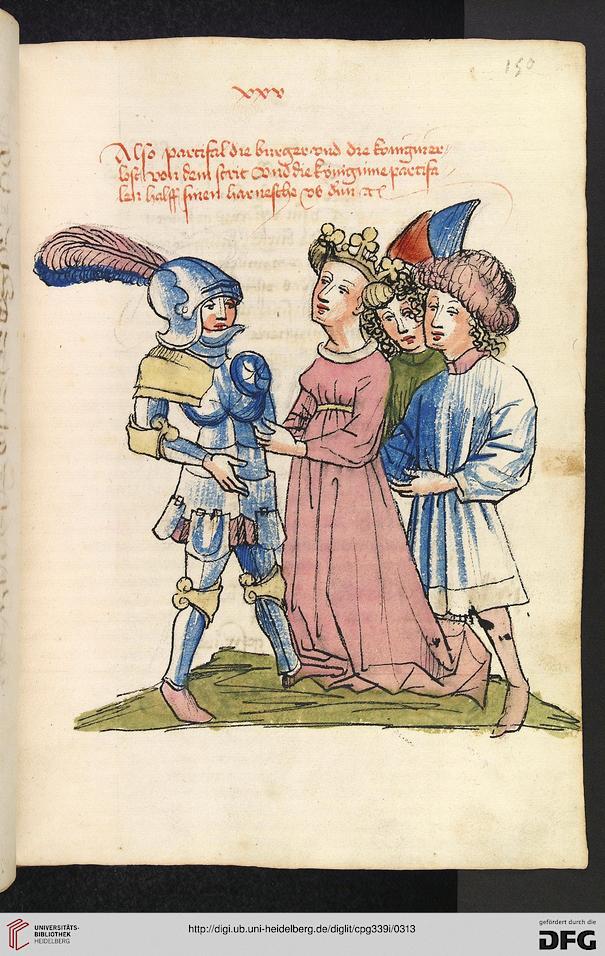 150
xxv
Also partifal die burger vnd die konigin er
lost von dem strit vnd die kôniginne partifa
len halff sinen harnesche vß dun
UNIVERSITÄTS-
BIBLIOTHEK
HEIDELBERG
http://digi.ub.uni-heidelberg.de/diglit/cpg339i/0313
gefördert durch die
DFG